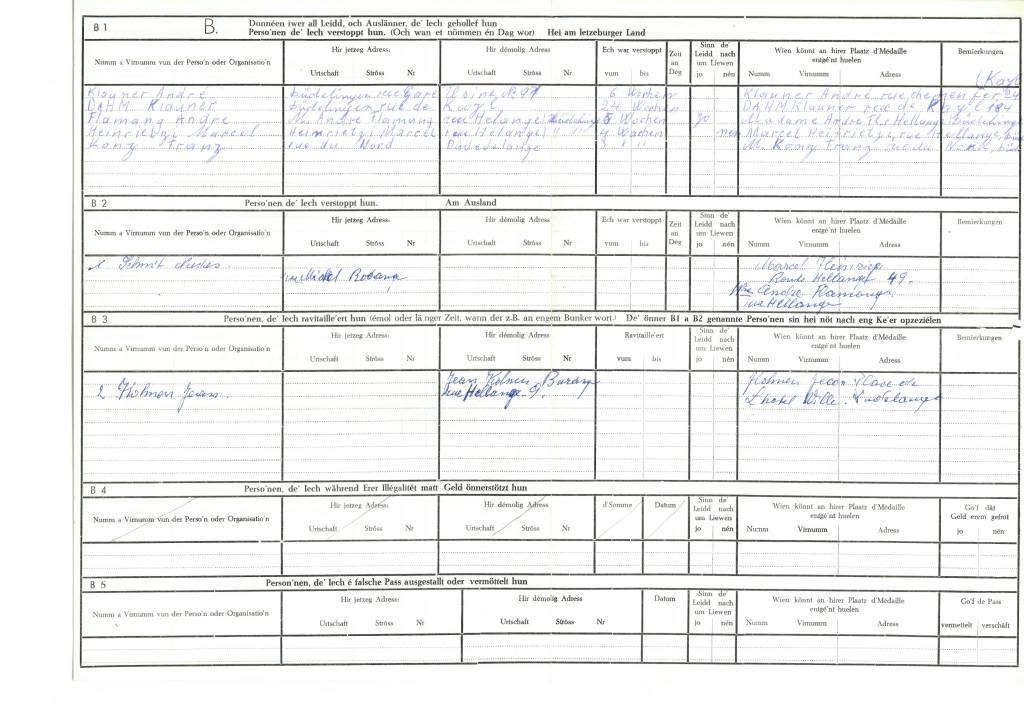 B 1 B. Donnéen iwer all Leidd, och Auslänner, de' Iech gehollef hun
Perso'nen de' Iech verstoppt hun. (Och wan et nömmen én Dag wor) Hei am letzeburger Land
Numm a Virnumm vun der Perso'n oder Organisatio'n Hir jetzeg Adress: Urtschaft Ströss Nr Hir démolig Adress: Urtschaft Ströss Nr Ech war verstoppt vum bis Zeit an Dég Sinn de' Leidd nach um Liewen jo nén Wien könnt an hirer Plaatz d'Médaille entgé'nt huelen Numm Virnumm Adress Bemierkungen
(Kayl
Klauner André Büdelingen rue Gare Usine Nr 97 6 Wochen Klauner André rue chemen fer 24
DAHM Klauner Büdelingen rue de Kayl 24 Wochen DAHM Klauner rue de Kayl 184
Flamang André Mr André Flamang rue Helange) 8 Wochen jo Madame Andre Hellange
Heinrietzi Marcel Heinrietzi Marcel rue Helange) " " 4 Wochen nen Marcel Heinrietzi, rue Hellange,
Konz Franz rue du Nord Düdelange 3 " " M. Konz Franz rue du Nord,
B 2 Perso'nen de' Iech verstoppt hun. Am Ausland
Numm a Virnumm vun der Perso'n oder Organisatio'n Hir jetzeg Adress: Urtschaft Ströss Nr Hir démolig Adress: Urtschaft Ströss Nr Ech war verstoppt vum bis Zeit an Dég Sinn de' Leidd nach um Liewen jo nén Wien könnt an hirer Plaatz d'Médaille entgé'nt huelen Numm Virnumm Adress Bemierkungen
1 Schmit Marcel
rue Michel Rodange Route Hellange 49.
Mme André Flamang
rue Hellange
B 3 Perso'nen, de' Iech ravitaille'ert hun (émol oder lä nger Zeit, wann der z.B. an engem Bunker wort.) De' önner B1 a B2 genannte Perso'nen sin hei nöt nach eng Ke'er opzeziélen
Numm a Virnumm vun der Perso'n oder Organisatio'n Hir jetzeg Adress: Urtschaft Ströss Nr Hir démolig Adress: Urtschaft Ströss Nr Ravitaille'ert vum bis Sinn de' Leidd nach um Liewen jo nén Wien könnt an hirer Plaatz d'Médaille entgé'nt huelen Numm Virnumm Adress Bemierkungen
Jean Kohnen Kohnen Jean Place de
2 Kohnen Jean. rue Hellange 9. L'hotel Ville. Dudelange
B 4 Perso'nen, de' Iech während Erer Illégalitét matt Geld önnerstötzt hun
Numm a Virnumm vun der Perso'n oder Organisatio'n Hir jetzeg Adress: Urtschaft Ströss Nr Hir démolig Adress: Urtschaft Ströss Nr d'Somme Datum Sinn de' Leidd nach um Liewen jo nén Wien könnt an hirer Plaatz d'Médaille entgé'nt huelen Numm Virnumm Adress Go'f dât Geld erem gefrot jo nén
B 5 Person'nen, de' Iech é falsche Pass ausgestallt oder vermöttelt hun
Numm a Virnumm vun der Perso'n oder Organisatio'n Hir jetzeg Adress: Urtschaft Ströss Nr Hir démolig Adress Urtschaft Ströss Nr Datum Sinn de' Leidd nach um Liewen jo nén Wien könnt an hirer Plaatz d'Médaille entgé'nt huelen Numm Virnumm Adress Go'f de Pass vermettelt verschäft